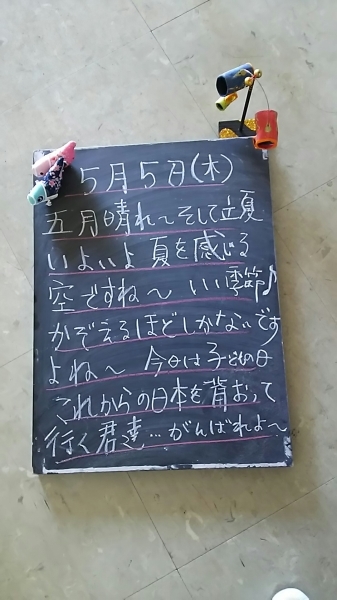 5月5日(木)
五月晴れ〜そして立夏
いよいよ夏を感じる
空ですね〜いい季節♪
かぞえるほどしかないです
よね〜 今日は子どもの日
これからの日本を背おって
行く君達…がんばれよ〜